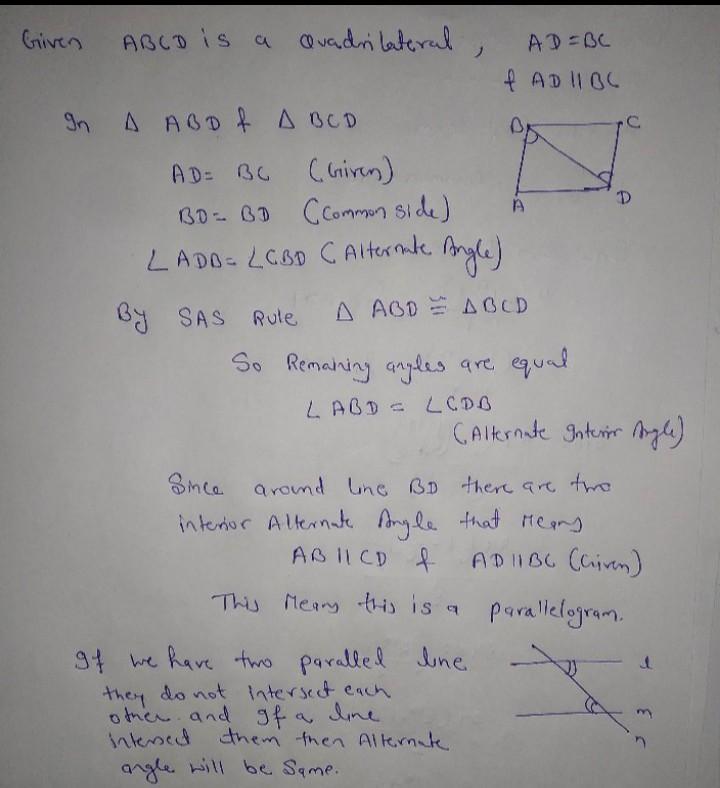 Given ABCD is a Quadrilateral, AD=BC
& AD || BC
In Δ ABD & Δ BCD
B C
AD= BC (Given)
A D
BD= BD (Common side)
∠ADB= ∠CBD (Alternate Angle)
By SAS Rule Δ ABD ≅ ΔBCD
So Remaining angles are equal
∠ABD = ∠CDB
(Alternate Interior Angle)
Since around line BD there are two
interior Alternate Angle that Means
AB || CD & AD || BC (Given)
This Means this is a parallelogram.
If we have two paralled line
l
they do not intersect each
other. and If a line
m
intersect them then Alternate
n
angle will be Same.